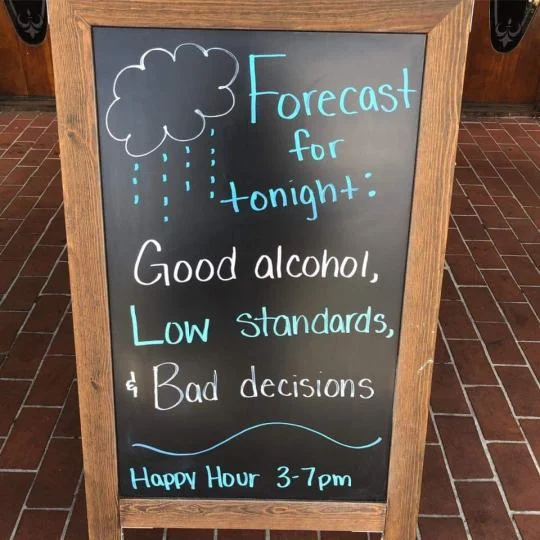 Forecast
for
tonight:
Good alcohol,
Low standards,
& Bad decisions
Happy Hour 3-7pm